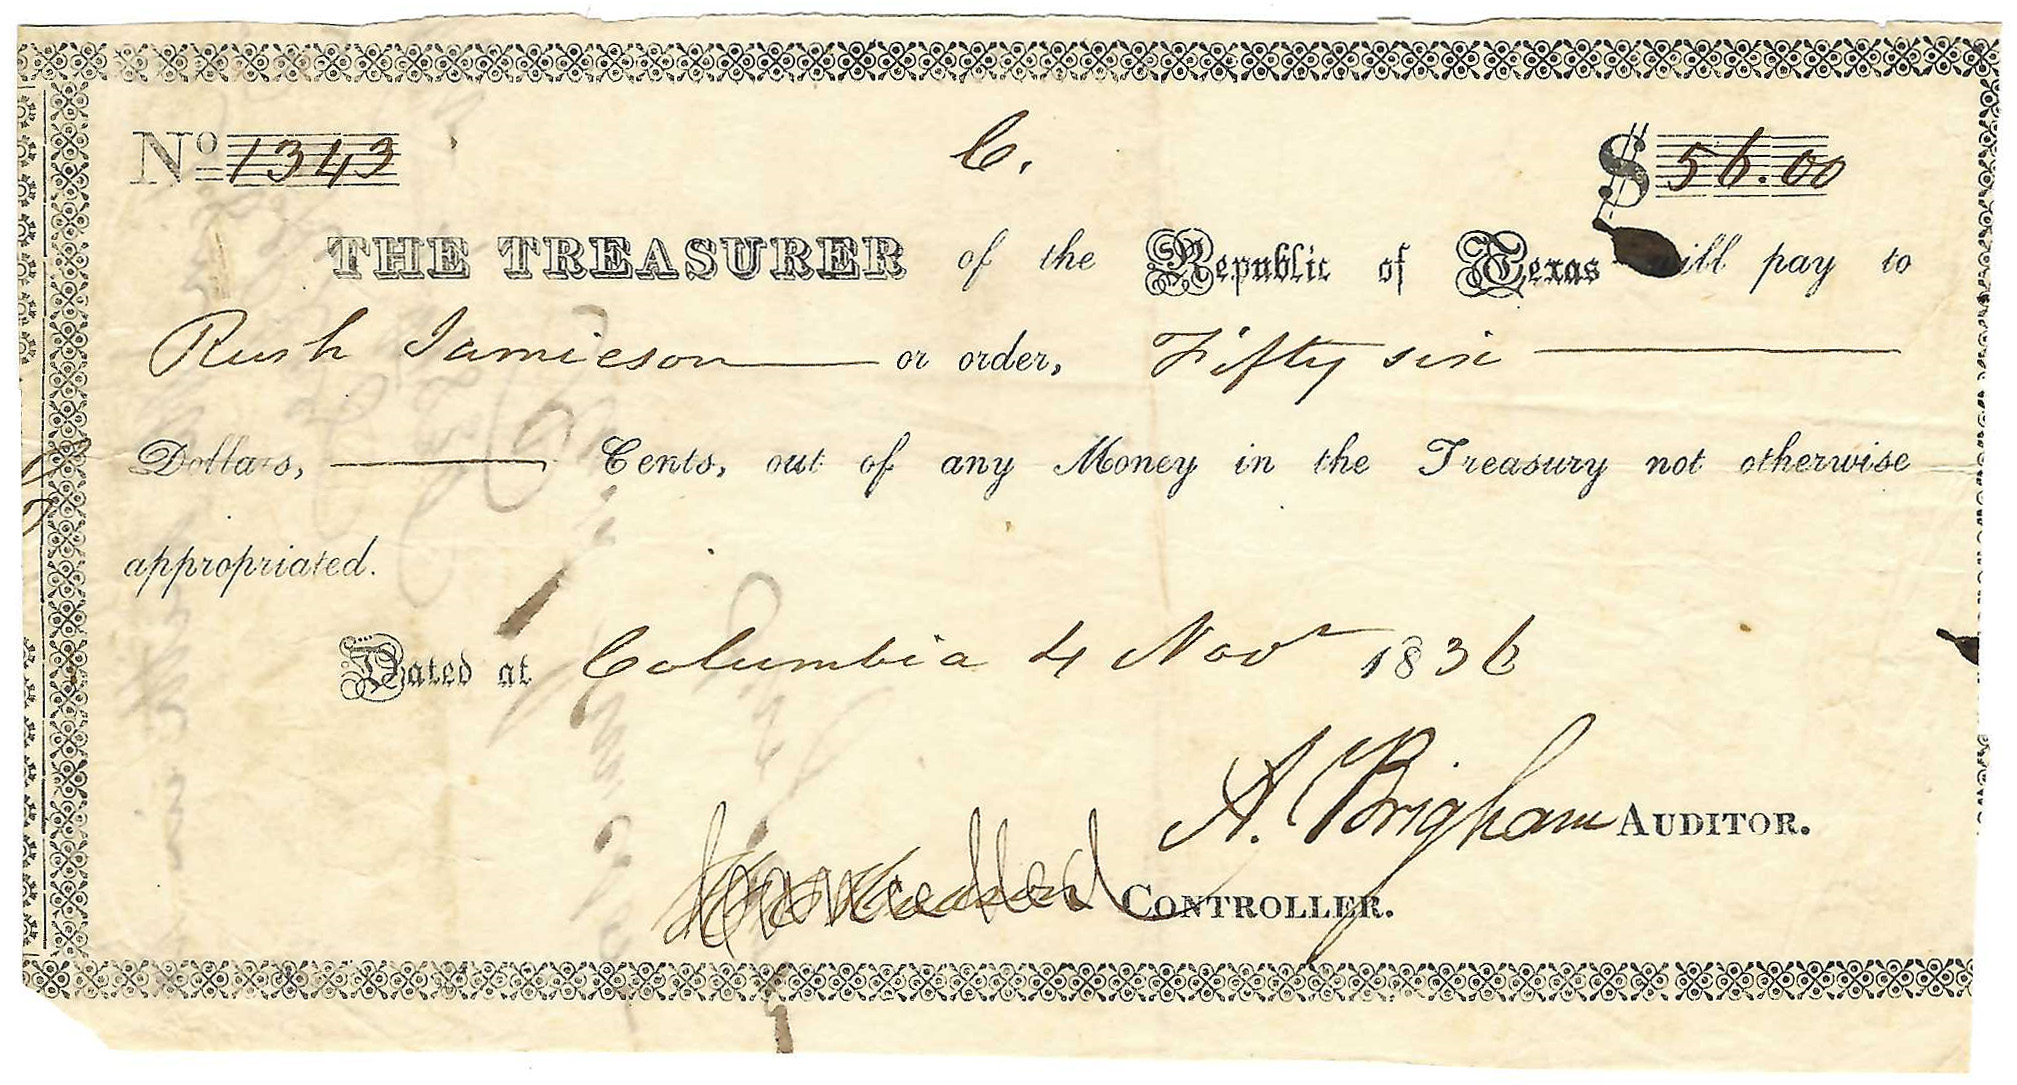 No 1343 C. $ 56.00
THE TREASURER of the Republic of Texas will pay to
Rush Jamieson or order, Fifty six
Dollars, Cents, out of any Money in the Treasury not otherwise
appropriated.
Dated at Columbia 4 Nov 1836
A. Brigham AUDITOR.
CONTROLLER.